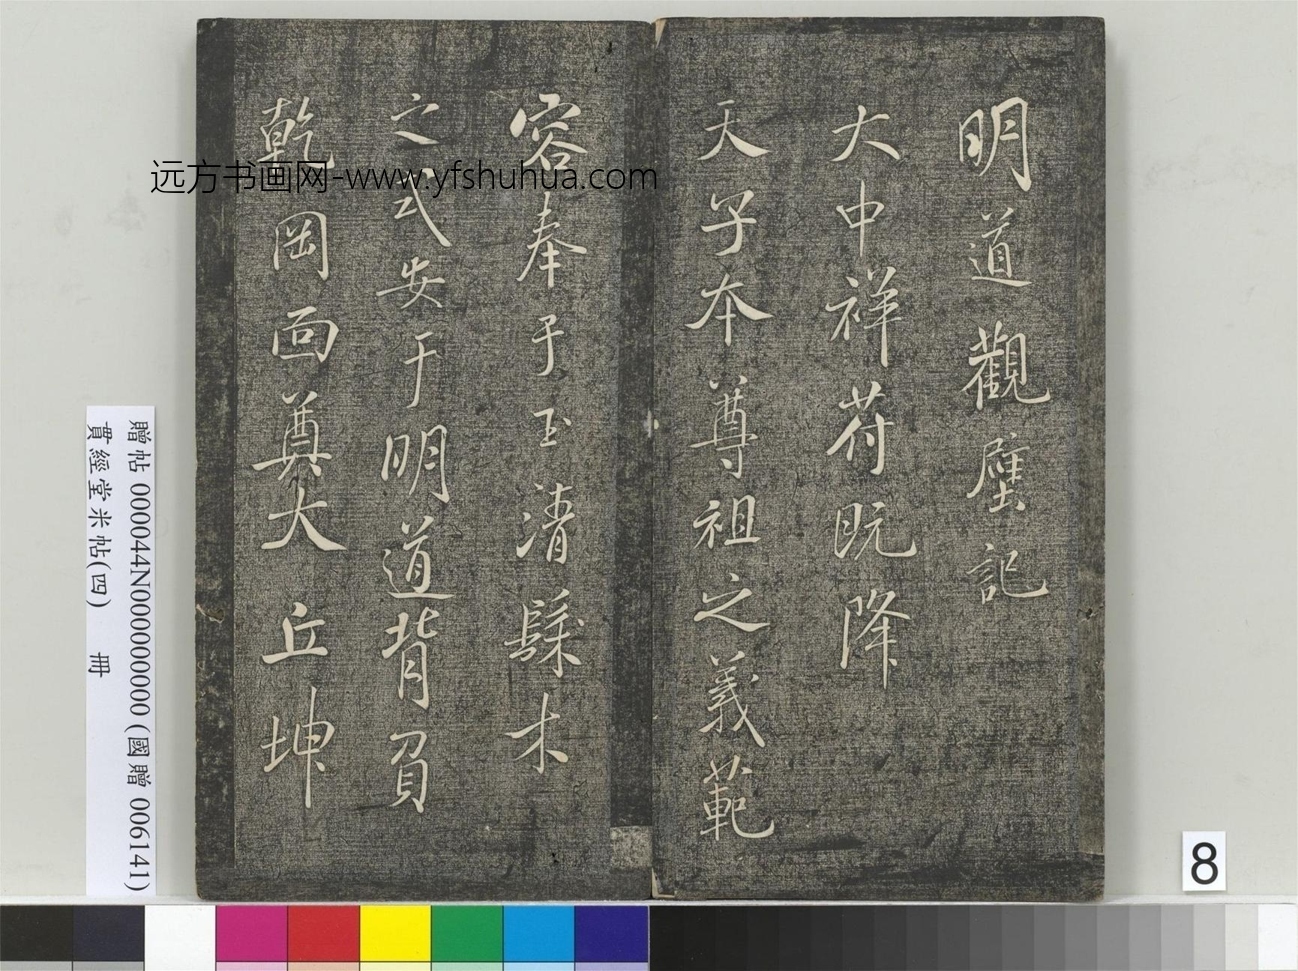 明道觀壁記
大中祥符既降
天子本尊祖之義範
容奉于玉清髹木
之式安于明道背負
乾岡面奠大丘坤
远方书画网-www.yfshuhua.com
贈帖 000044N000000000 (國贈 006141)
貫經堂米帖(四) 冊
8